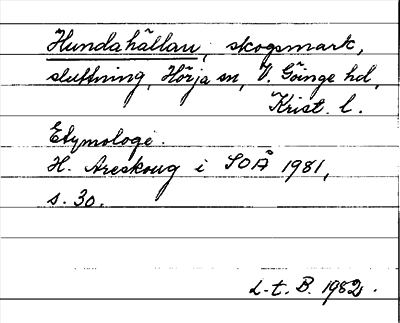 Hundahällan, skogsmark,
sluttning, Hörja sn, V. Göinge hd,
Krist. l.
Etymologi.
H. Areskoug i SOÅ 1981,
s. 30.
L-t. B. 1982.